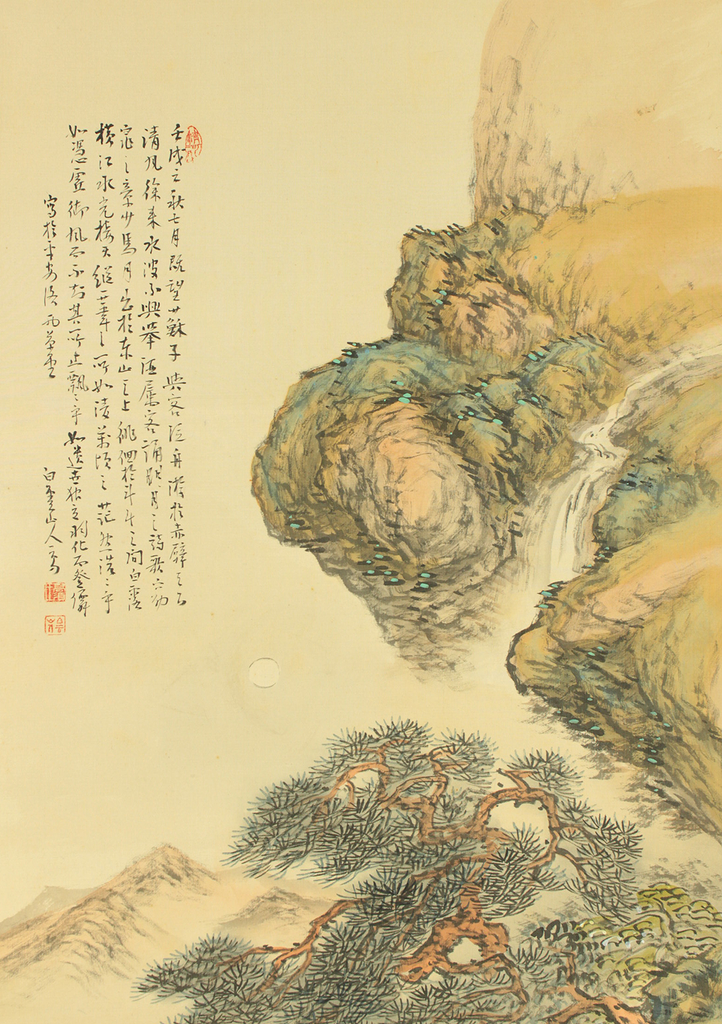 壬戌之秋七月既望蘇子與客泛舟游於赤壁之下
清風徐来水波不興舉酒属客誦明月之詩歌窈
窕之章少馬月出於东山之上徘徊於斗牛之間白露
横江水光接天縱一葦之所如凌萬頃之茫然浩々乎
如馮虚御風而不知其所止飄々乎如遺世独立羽化而登僊
寫於平安洛西草堂 山人